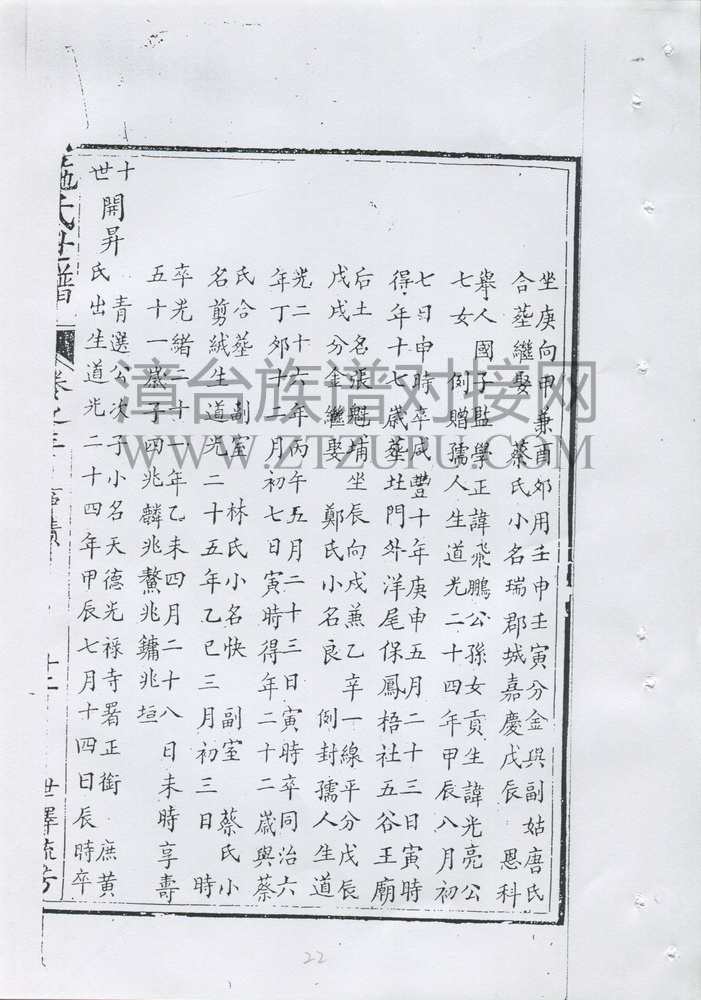 坐庚向甲兼酉卯用壬申壬寅分金與副姑唐氏
合塟繼娶 蔡氏小名瑞郡城嘉慶戊辰 恩科
舉人國子監學正諱飛鵬公孫女貢生諱光亮公
七女 例贈孺人生道光二十四年甲辰八月初
七日申時卒咸豐十年庚申五月二十三日寅時
得年十七歲塟社門外洋尾保鳳梧社五谷王廟
后土名張魁埔坐辰向戌兼乙辛一線平分戊辰
戊戌分金繼娶 鄭氏小名良 例封孺人生道
光二十六年丙午五月二十三日寅時卒同治六
年丁卯十二月初七日寅時得年二十二歲與蔡
氏合塟 副室 林氏小名快 副室 蔡氏小
名剪絨生道光二十五年乙巳三月初三日 時
卒光緒二十一年乙未四月二十八日未時享壽
五十一歲子四兆麟兆鰲兆鏞兆垣
十世
開昇
青選公次子小名天德光祿寺署正銜 庶黃
氏出生道光二十四年甲辰七月十四日辰時卒
施氏世譜 卷之三 十二
漳台族谱对接网
WWW.ZTZUPU.COM
22